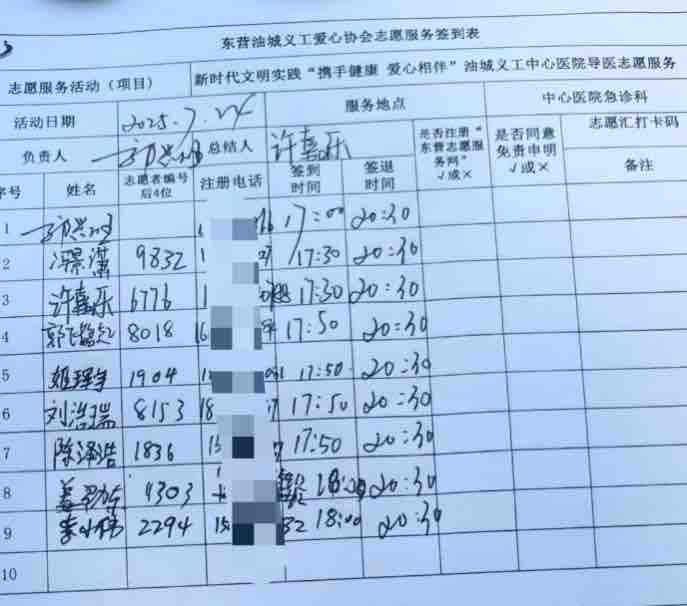 东营油城义工爱心协会志愿服务签到表
志愿服务活动（项目） 新时代文明实践“携手健康 爱心相伴”油城义工中心医院导医志愿服务
活动日期 2025.7.24 服务地点 中心医院急诊科
负责人 总结人 许嘉乐 是否注册“东营志愿服务网”√或× 是否同意免责申明√或× 志愿汇打卡码
序号 姓名 志愿者编号后4位 注册电话 签到时间 签退时间 备注
1 17:00 20:30
2 9832 1 17:30 20:30
3 许嘉乐 6776 1 17:30 20:30
4 8018 17:50 20:30
5 1904 17:50 20:30
6 刘浩瑞 8153 18 17:50 20:30
7 陈泽浩 1836 17:50 20:30
8 4303 18:00 20:30
9 2294 18:00 20:30
10